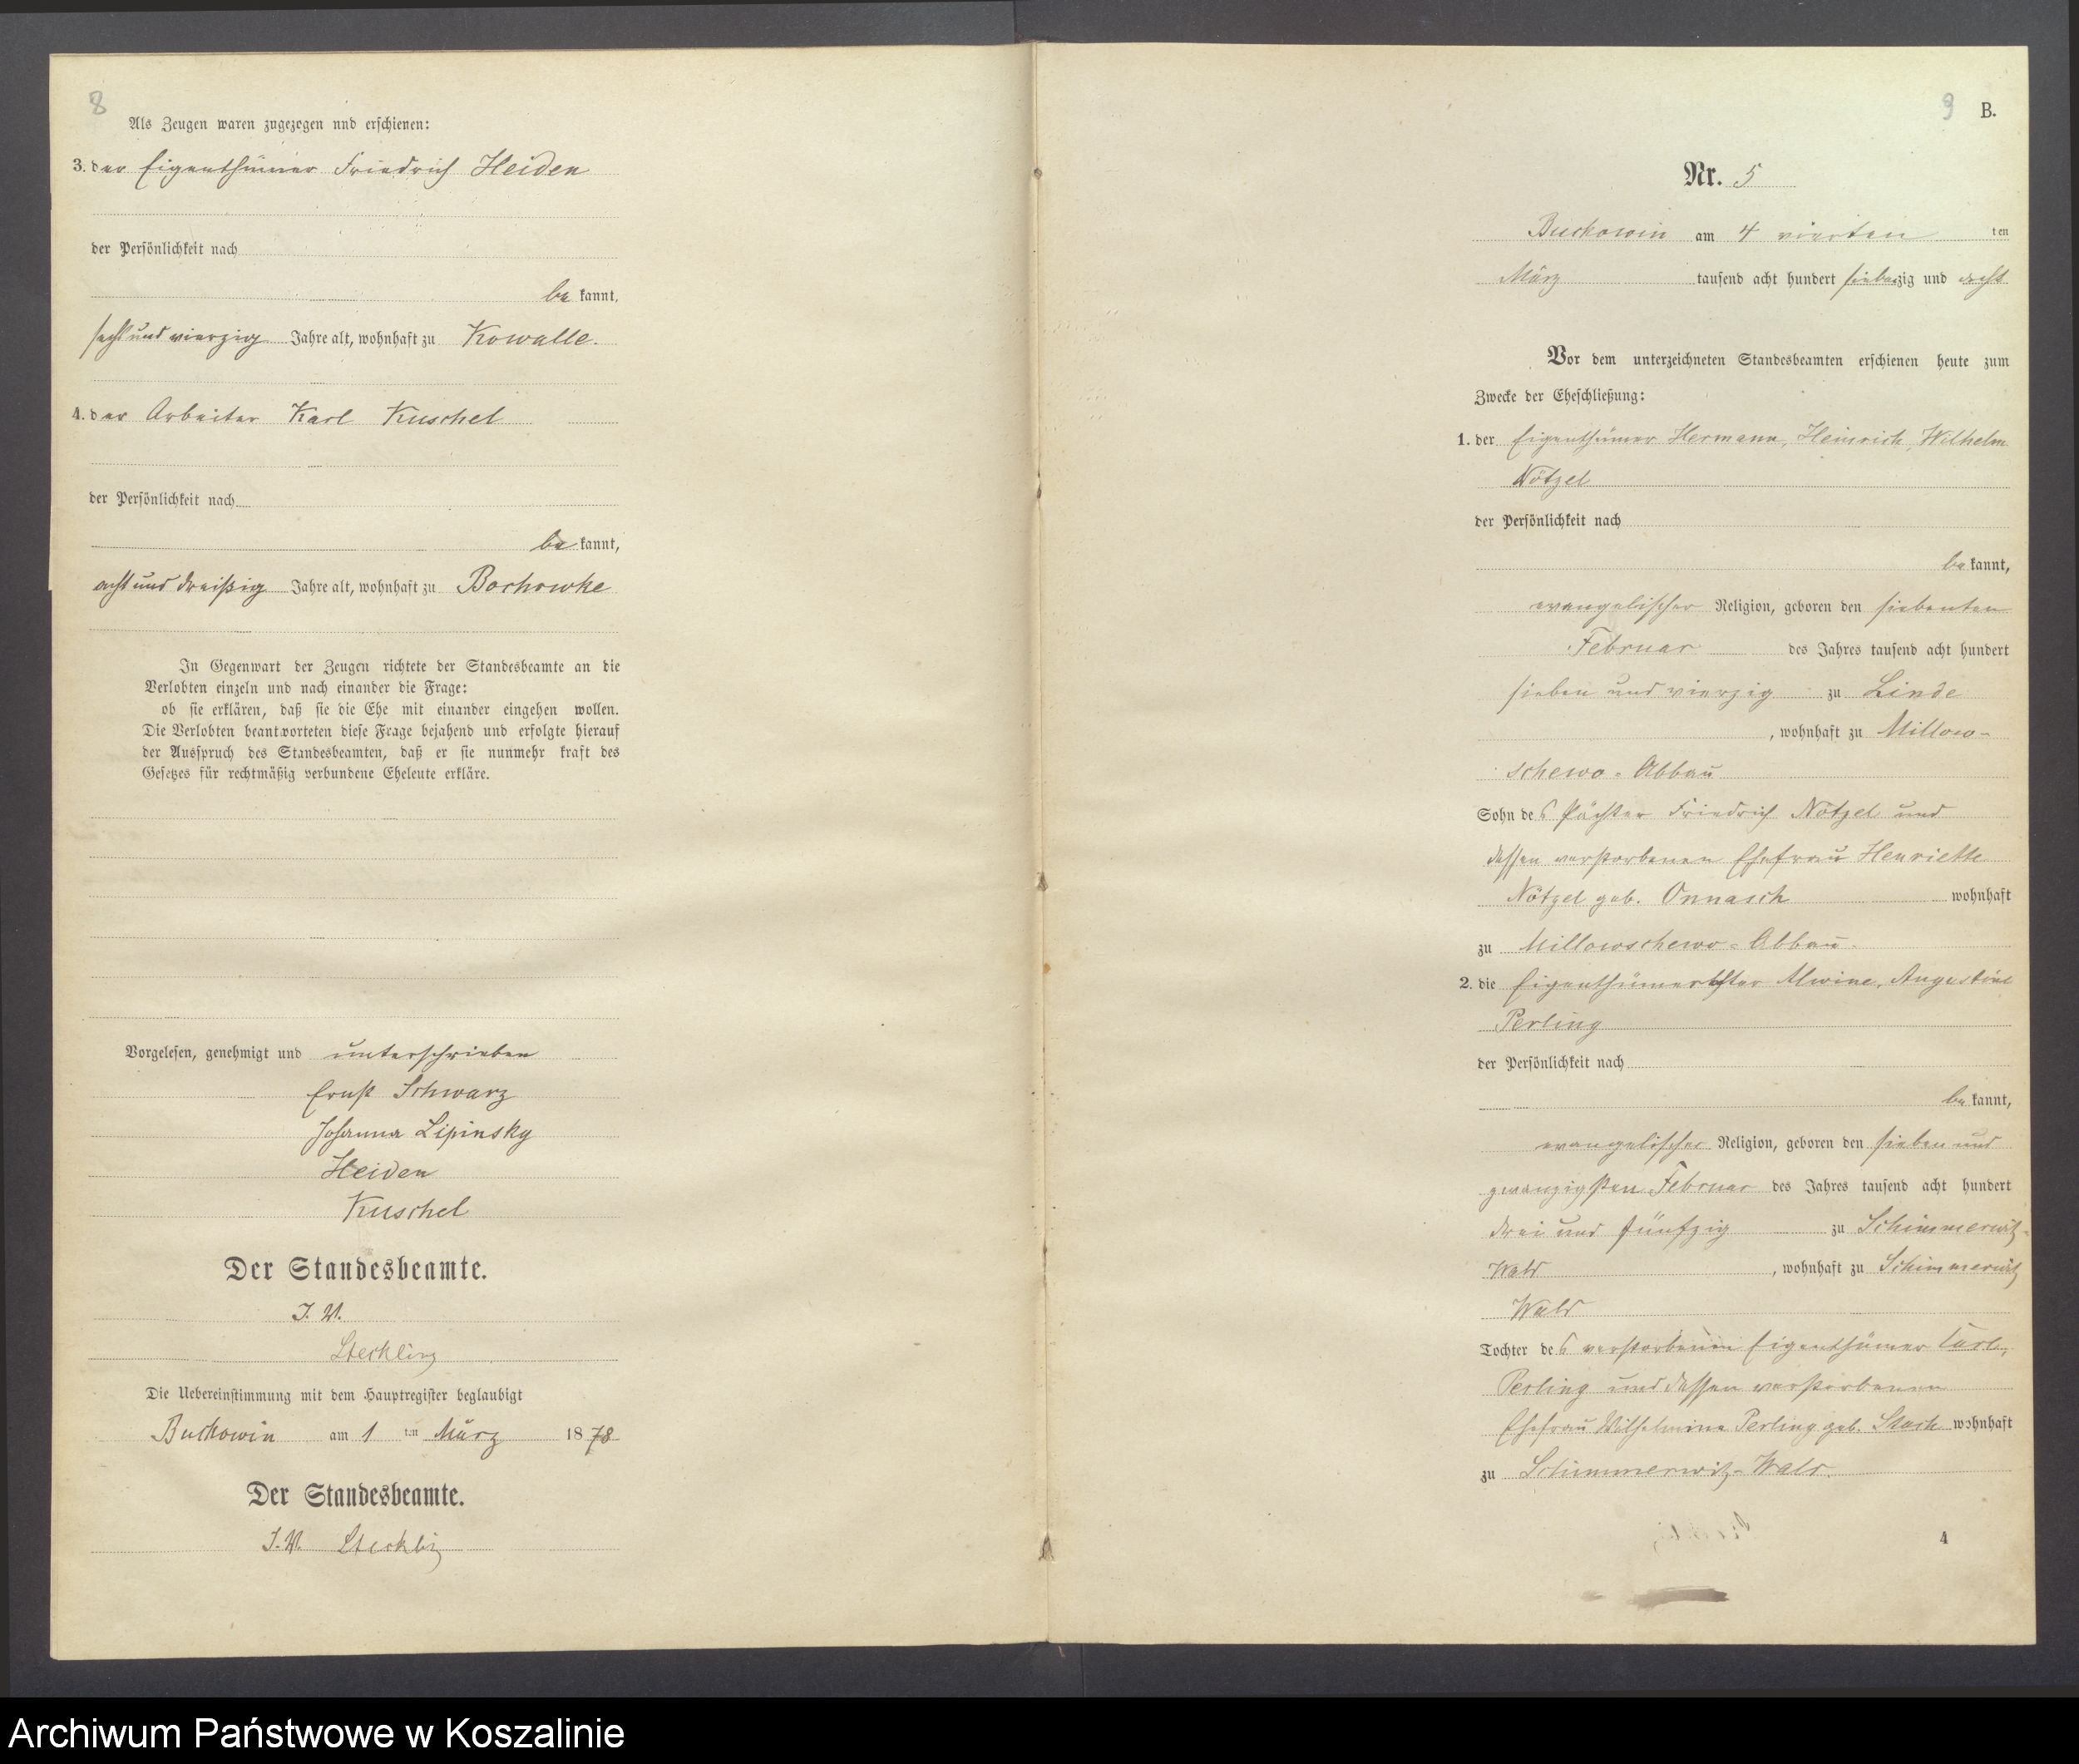 8
Als Zeugen waren zugezogen und erschienen:
3. der Eigenthümer Friedrich Heiden
der Persönlichkeit nach
be kannt,
sechs und vierzig Jahre alt, wohnhaft zu Kowalle.
4. der Arbeiter Karl Kuschel
der Persönlichkeit nach
be kannt,
acht und dreißig Jahre alt, wohnhaft zu Bochowke
In Gegenwart der Zeugen richtete der Standesbeamte an die
Verlobten einzeln und nach einander die Frage:
ob sie erklären, daß sie die Ehe mit einander eingehen wollen.
Die Verlobten beantworteten diese Frage bejahend und erfolgte hierauf
der Ausspruch des Standesbeamten, daß er sie nunmehr kraft des
Gesetzes für rechtmäßig verbundene Eheleute erkläre.
Vorgelesen, genehmigt und unterschrieben
Ernst Schwarz
Johanna Lipinsky
Heiden
Kuschel
Der Standesbeamte.
I. V.
Steckling
Die Uebereinstimmung mit dem Hauptregister beglaubigt
Buckowin am 1 ten März 1878
Der Standesbeamte.
I. V. Steckling
9 B.
Nr. 5
Buckowin am 4 vierten ten
März tausend acht hundert siebenzig und acht
Vor dem unterzeichneten Standesbeamten erschienen heute zum
Zwecke der Eheschließung:
1. der Eigenthümer Hermann, Heinrich, Wilhelm
Nötzel
der Persönlichkeit nach
be kannt,
evangelischer Religion, geboren den siebenten
Februar des Jahres tausend acht hundert
sieben und vierzig zu Linde
, wohnhaft zu Millow-
schewo-Abbau
Sohn des Pächter Friedrich Nötzel und
dessen verstorbenen Ehefrau Henriette
Nötzel geb. Onnasch wohnhaft
zu Millowschewo-Abbau.
2. die Alwine, Augustine
Perling
der Persönlichkeit nach
be kannt,
evangelischer Religion, geboren den sieben und
zwanzigsten Februar des Jahres tausend acht hundert
drei und fünfzig zu Schimmerwitz-
Wald , wohnhaft zu Schimmerwitz
Wald
Tochter des verstorbenen Eigenthümer Carl
Perling und dessen verstorbenen
Ehefrau Wilhelmine Perling geb. wohnhaft
zu Schimmerwitz-Wald.
4
Archiwum Państwowe w Koszalinie